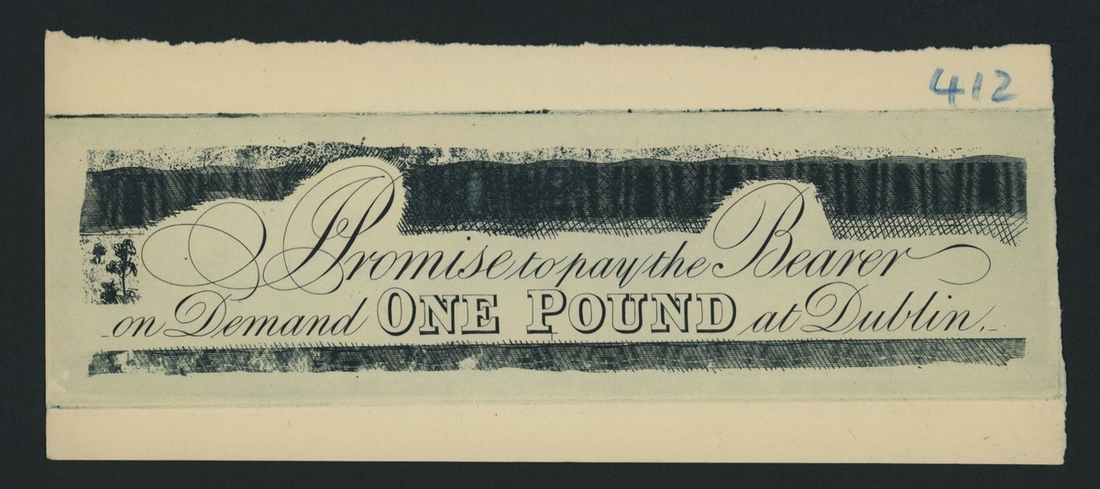 412
I Promise to pay the Bearer
on Demand ONE POUND at Dublin.